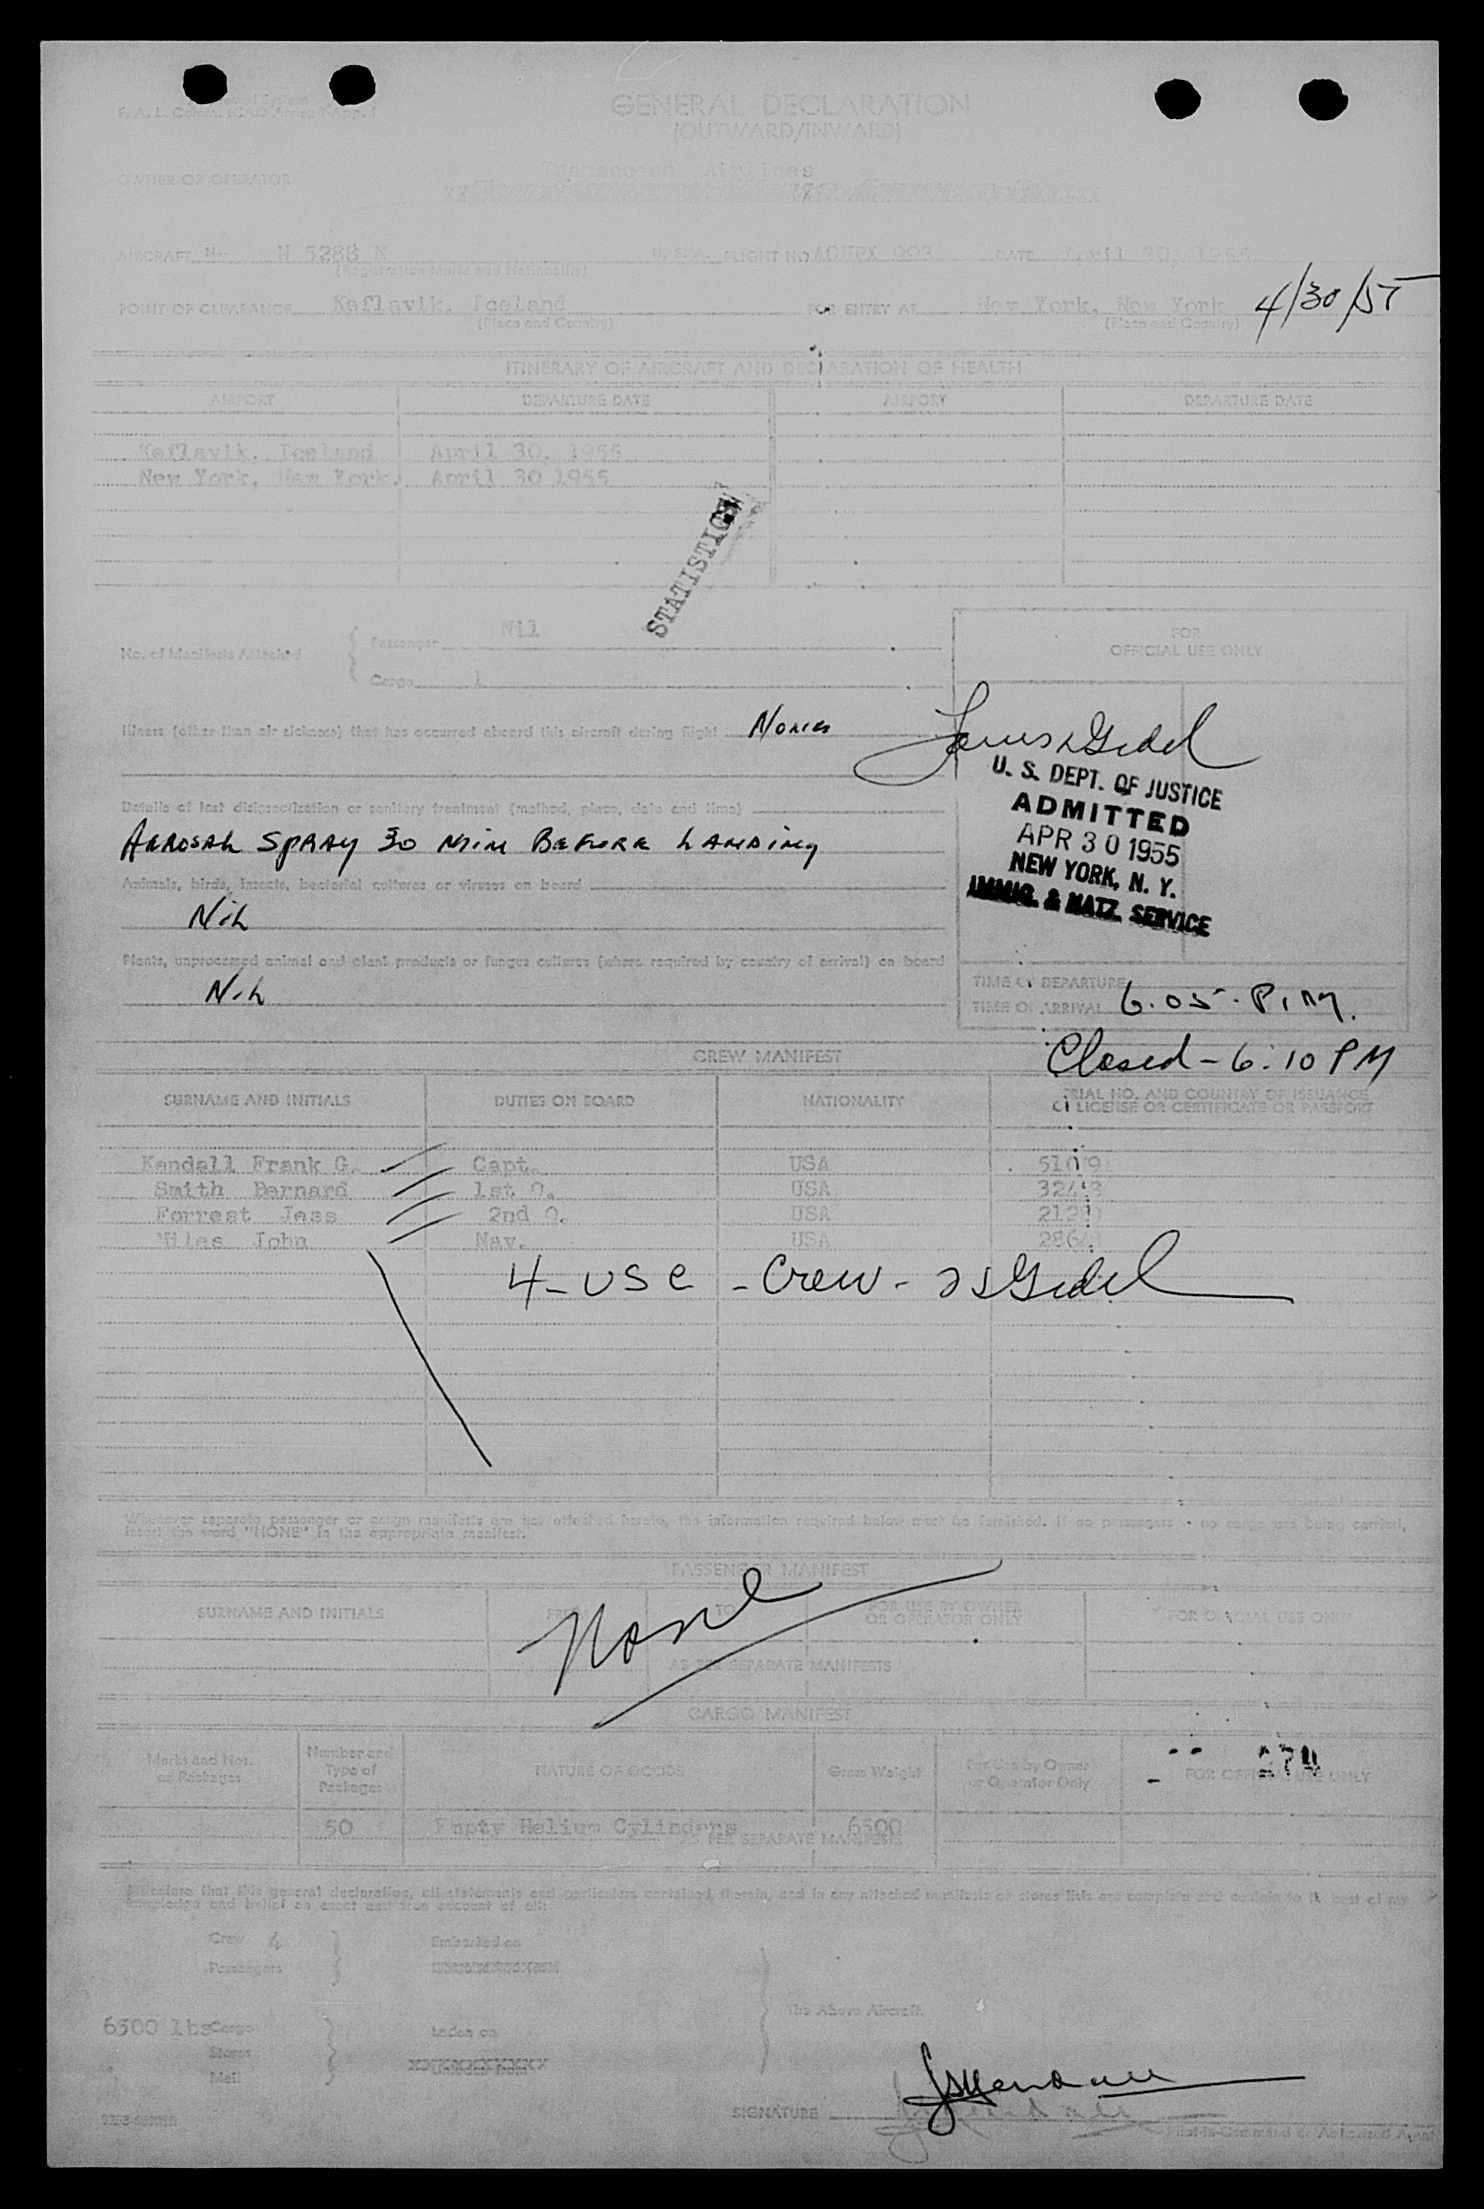 GENERAL DECLARATION
(OUTWARD/INWARD)
OWNER OR OPERATOR Airlines
AIRCRAFT N 5288 N U. S. A. FLIGHT NO. 003 DATE April 30, 1955
(Registration Marks and Nationality)
POINT OF CLEARANCE Keflavik, Iceland FOR ENTRY AT New York, New York 4/30/55
(Place and Country) (Place and Country)
ITINERARY OF AIRCRAFT AND DECLARATION OF HEALTH
AIRPORT DEPARTURE DATE AIRPORT DEPARTURE DATE
Keflavik, Iceland April 30, 1955
New York, New York, April 30 1955
No. of Manifests Attached { Passenger Nil
Cargo 1
FOR
OFFICIAL USE ONLY
Illness (other than air sickness) that has occurred aboard this aircraft during flight None
U. S. DEPT. OF JUSTICE
ADMITTED
APR 30 1955
NEW YORK, N. Y.
IMMIG. & NATZ. SERVICE
Details of last disinsectization or sanitary treatment (method, place, date and time)
AEROSAL SPRAY 30 MIN BEFORE LANDING
Animals, birds, insects, bacterial cultures or viruses on board
NiL
Plants, unprocessed animal and plant products or fungus cultures (where required by country of arrival) on board
NiL
TIME OF DEPARTURE
TIME OF ARRIVAL 6.05 - P.M.
Closed - 6:10 PM
CREW MANIFEST
SURNAME AND INITIALS DUTIES ON BOARD NATIONALITY SERIAL NO. AND COUNTRY OF ISSUANCE
OF LICENSE OR CERTIFICATE OR PASSPORT
Kendall Frank G. Capt. USA
Smith Bernard 1st O. USA
Forrest Jess 2nd O. USA
Miles John Nav. USA
4 - USC - Crew -
Whenever separate passenger or cargo manifests are not attached hereto, the information required below must be furnished. If no passengers or no cargo are being carried,
insert the word "NONE" in the appropriate manifest.
PASSENGER MANIFEST
SURNAME AND INITIALS FROM TO FOR USE BY OWNER
OR OPERATOR ONLY FOR OFFICIAL USE ONLY
None
AS PER SEPARATE MANIFESTS
CARGO MANIFEST
Marks and Nos.
on Packages Number and
Type of
Packages NATURE OF GOODS Gross Weight For Use by Owner
or Operator Only FOR OFFICIAL USE ONLY
50 Empty Helium Cylinders 6500
AS PER SEPARATE MANIFESTS
I declare that this general declaration, all statements and particulars contained therein, and in any attached manifests or stores lists are complete and certain to the best of my
knowledge and belief an exact and true account of all:
Crew 4 Embarked on
Passengers
The Above Aircraft.
6500 lbs Cargo Laden on
Stores
Mail
SIGNATURE
Pilot-in-Command or Authorized Agent